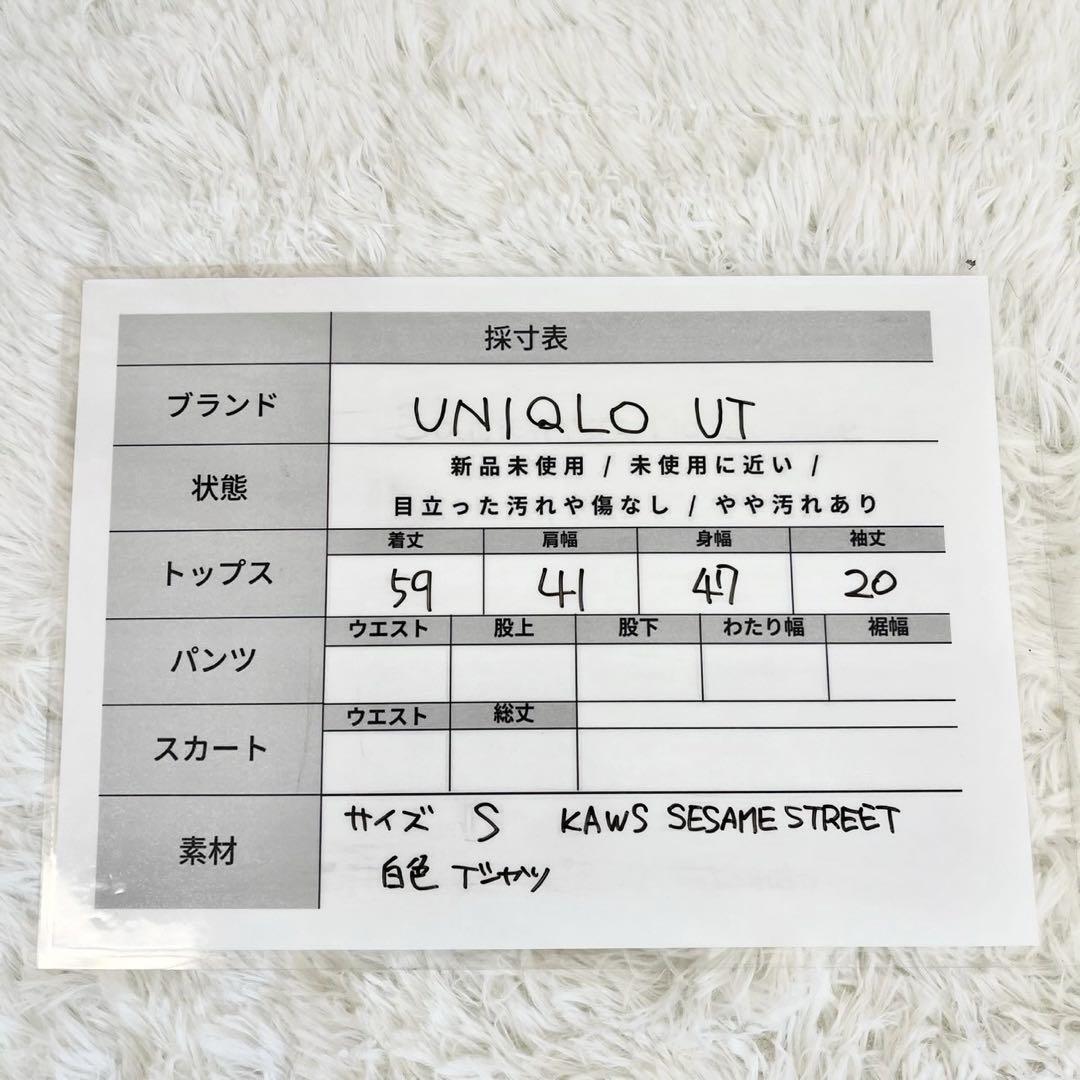 採寸表
ブランド UNIQLO UT
状態 新品未使用 / 未使用に近い /
目立った汚れや傷なし / やや汚れあり
トップス 着丈 肩幅 身幅 袖丈
59 41 47 20
パンツ ウエスト 股上 股下 わたり幅 裾幅
スカート ウエスト 総丈
素材 サイズ S KAWS SESAME STREET
白色 Tシャツ